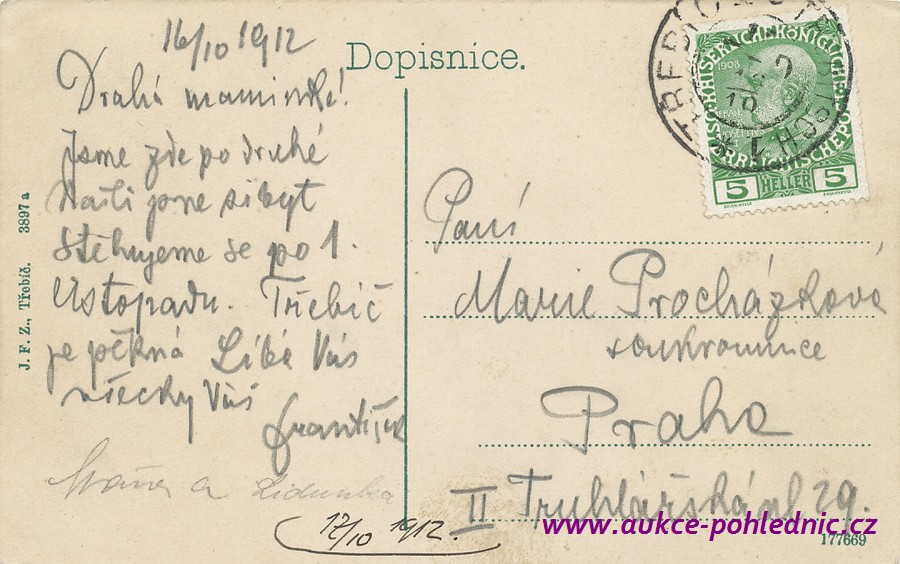 16/10 1912
Drahá maminko!
Jsme zde po druhé
Našli jsme si byt
Stěhujeme se po 1.
listopadu. Třebíč
je pěkná Líbá Vás
všecky Váš
František
Máňa a Lidunka
17/10 1912.
Dopisnice.
J. F. Z., Třebíč. 3897 a
KAISERLICHE KÖNIGLICHE
ÖSTERREICHISCHE POST
1908
5 HELLER 5
Paní
Marie Procházková
soukromnice
Praha
II Truhlářská ul 29.
www.aukce-pohlednic.cz
177669